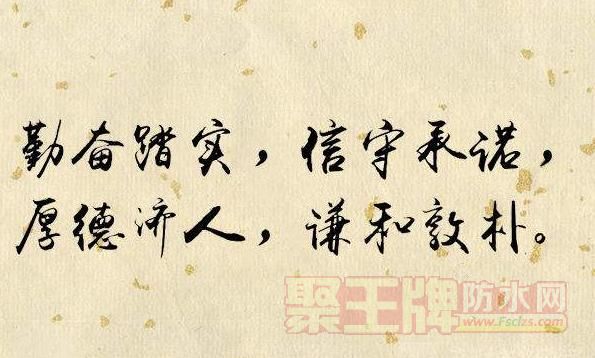 勤奋踏实，信守承诺，
厚德济人，谦和敦朴。
聚王牌防水网
www.Fsclzs.com